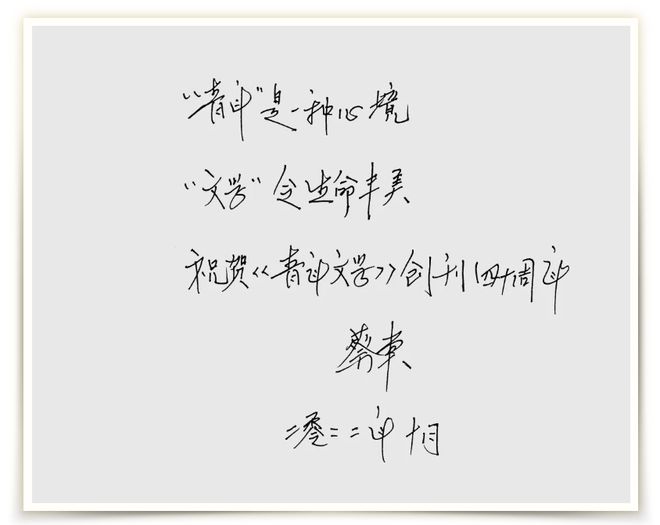 “青年”是一种心境
“文学”令生命丰美
祝贺《青年文学》创刊四十周年
蔡东
二零二二年十月